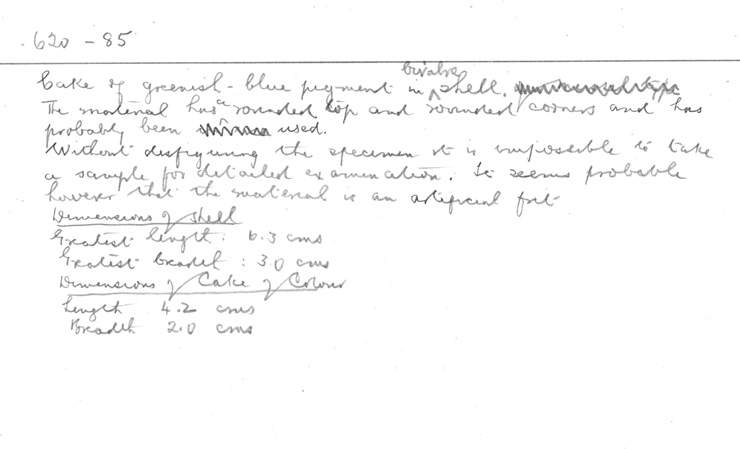 620 - 85
Cake of greenish-blue pigment in bivalve shell.
The material has a rounded top and rounded corners and has
probably been used.
Without disfiguring the specimen it is impossible to take
a sample for detailed examination. It seems probable
however that the material is an artificial frit
Dimensions of Shell
Greatest length: 6.3 cms
Greatest breadth: 3.0 cms
Dimensions of Cake of Colour
Length 4.2 cms
Breadth 2.0 cms